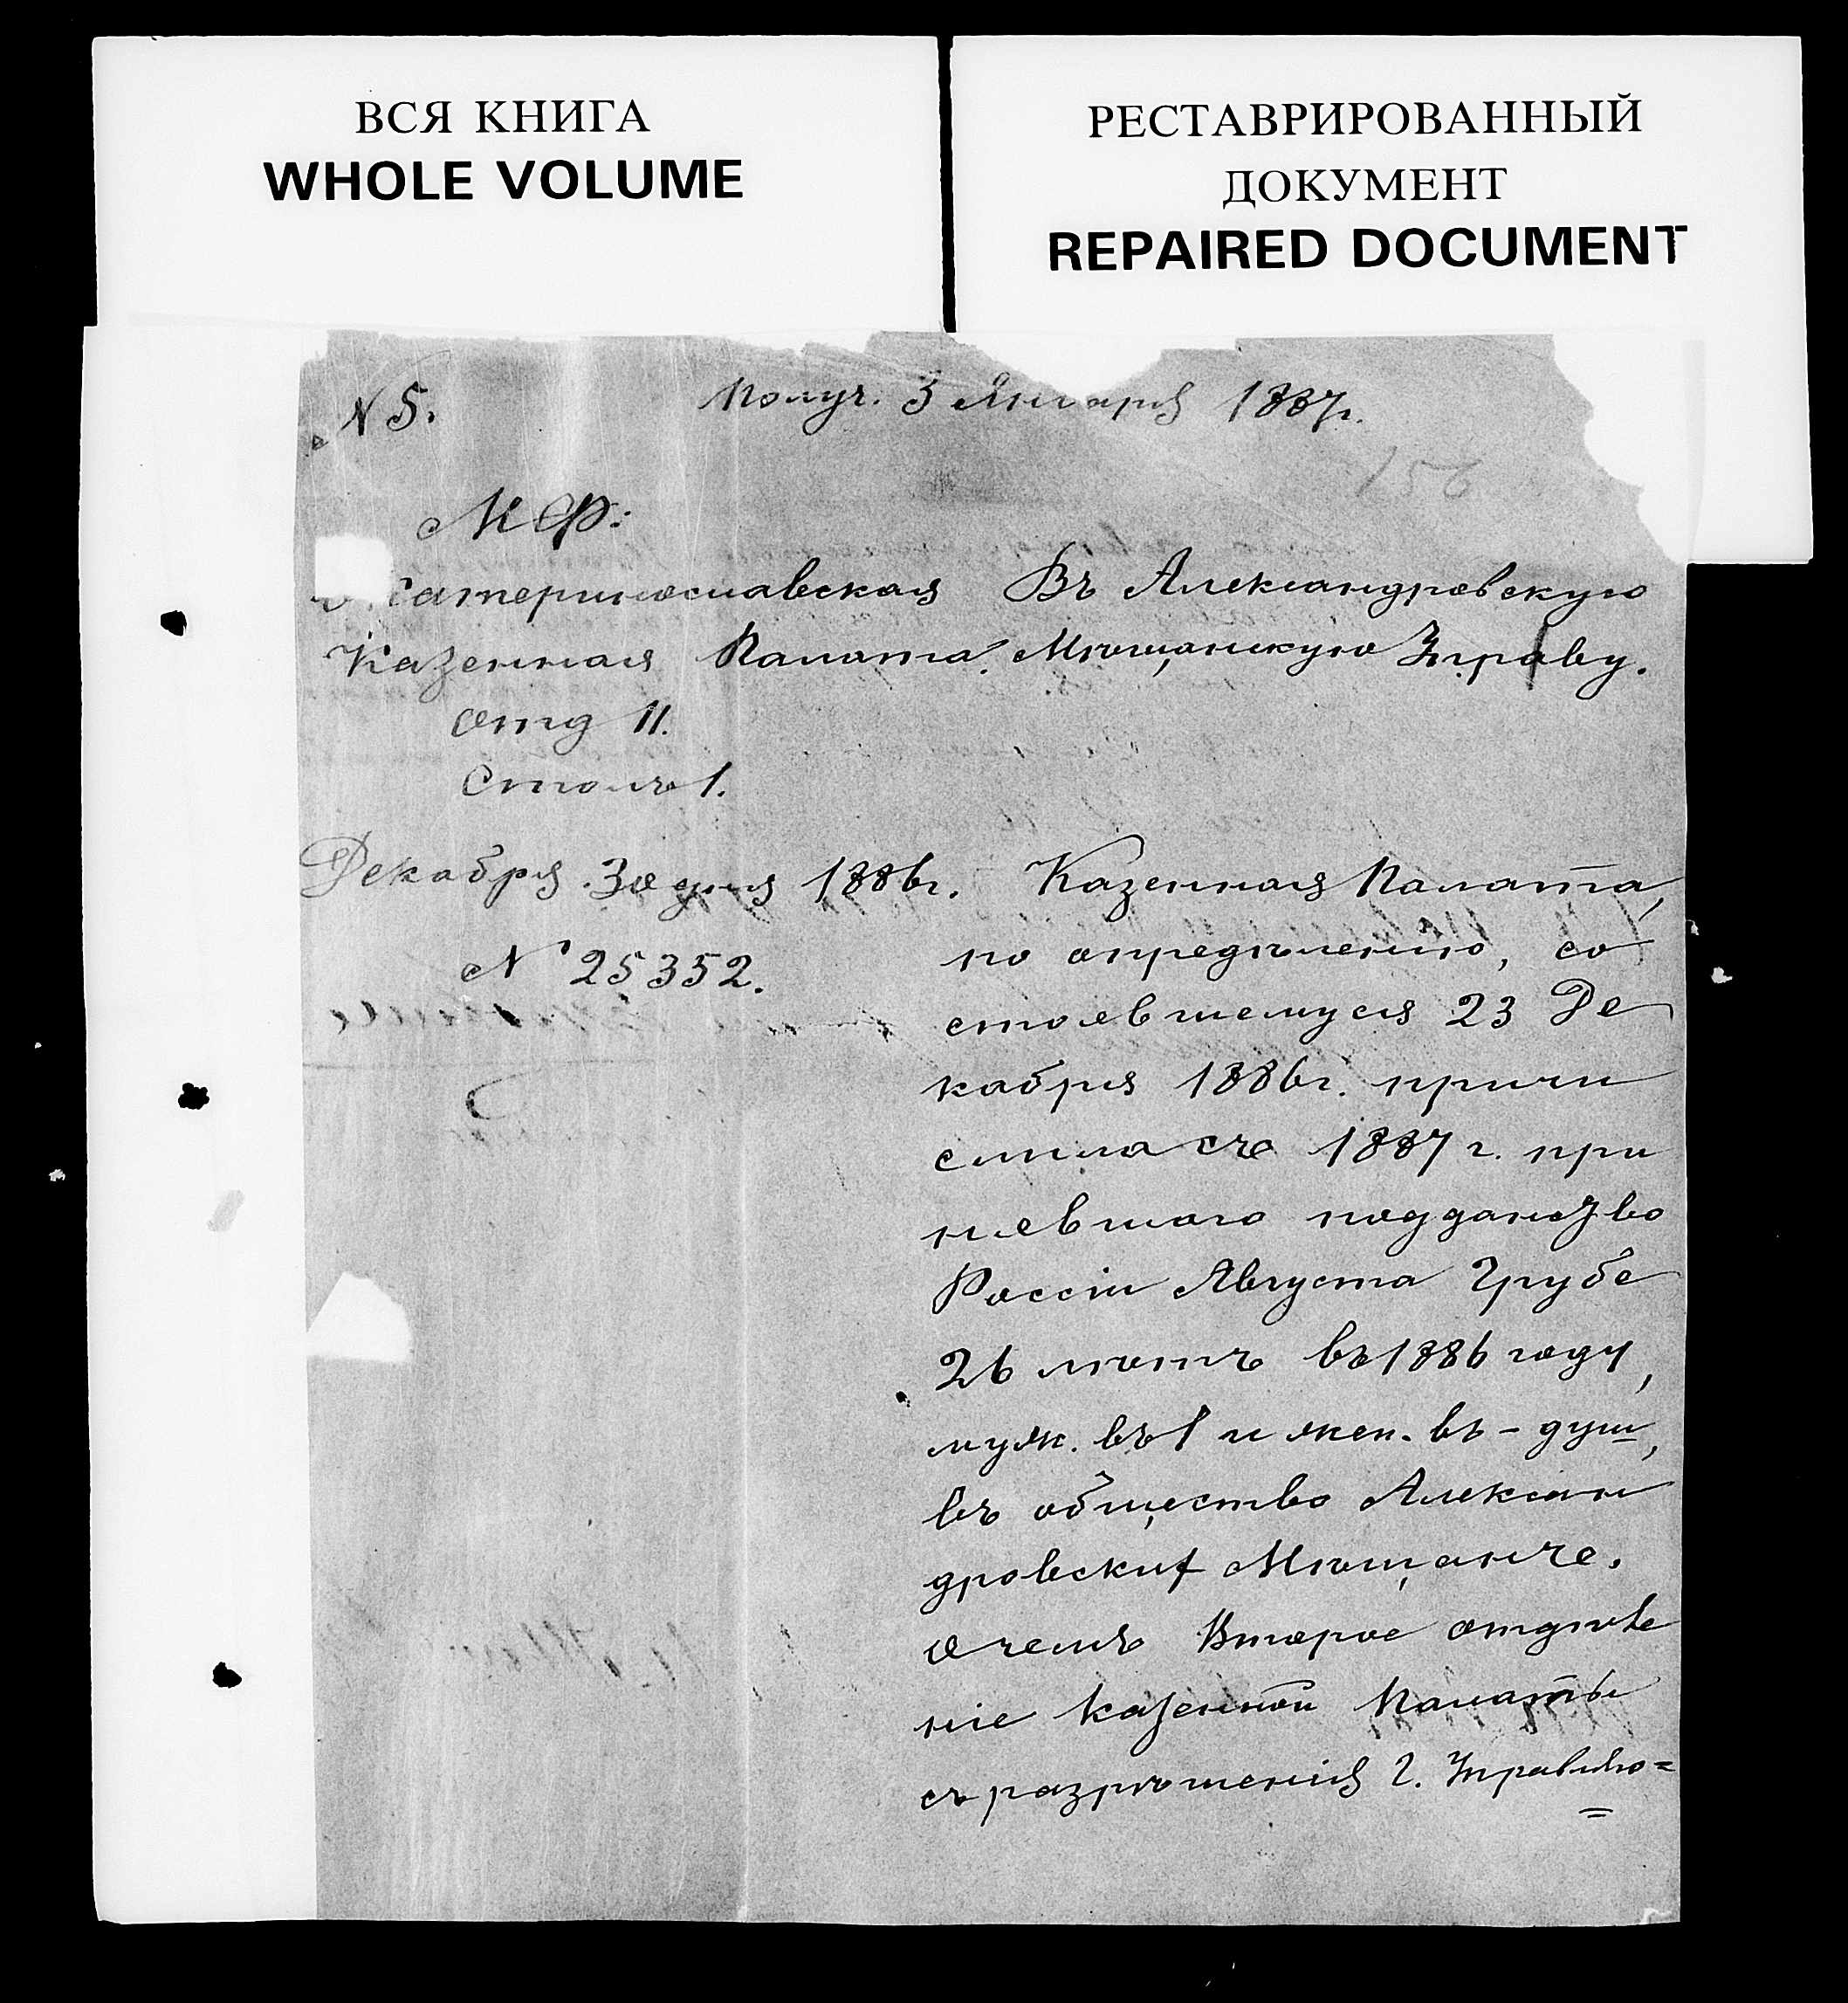 ВСЯ КНИГА
WHOLE VOLUME
РЕСТАВРИРОВАННЫЙ
ДОКУМЕНТ
REPAIRED DOCUMENT
N 5.
Получ. 3 Января 1887г.
156
М Ф:
катеринославская
Казенная Палата.
отд II.
Столъ 1.
Декабря 30 дня 1886г.
N 25352.
Въ Александровскую
Мѣщанскую Управу.
Казенная Палата,
по опредѣленію, со
стоявшемуся 23 Де
кабря 1886г. причи
слила съ 1887 г. при
нявшаго подданство
Россіи Августа Грубе
26 лѣтъ въ 1886 году,
муж. въ 1 и жен. въ - душ,
въ общество Алексан
дровских Мѣщанъ.
О чемъ Второе отдѣле
ніе Казенной Палаты
съ разрѣшенія Г. Управляю=